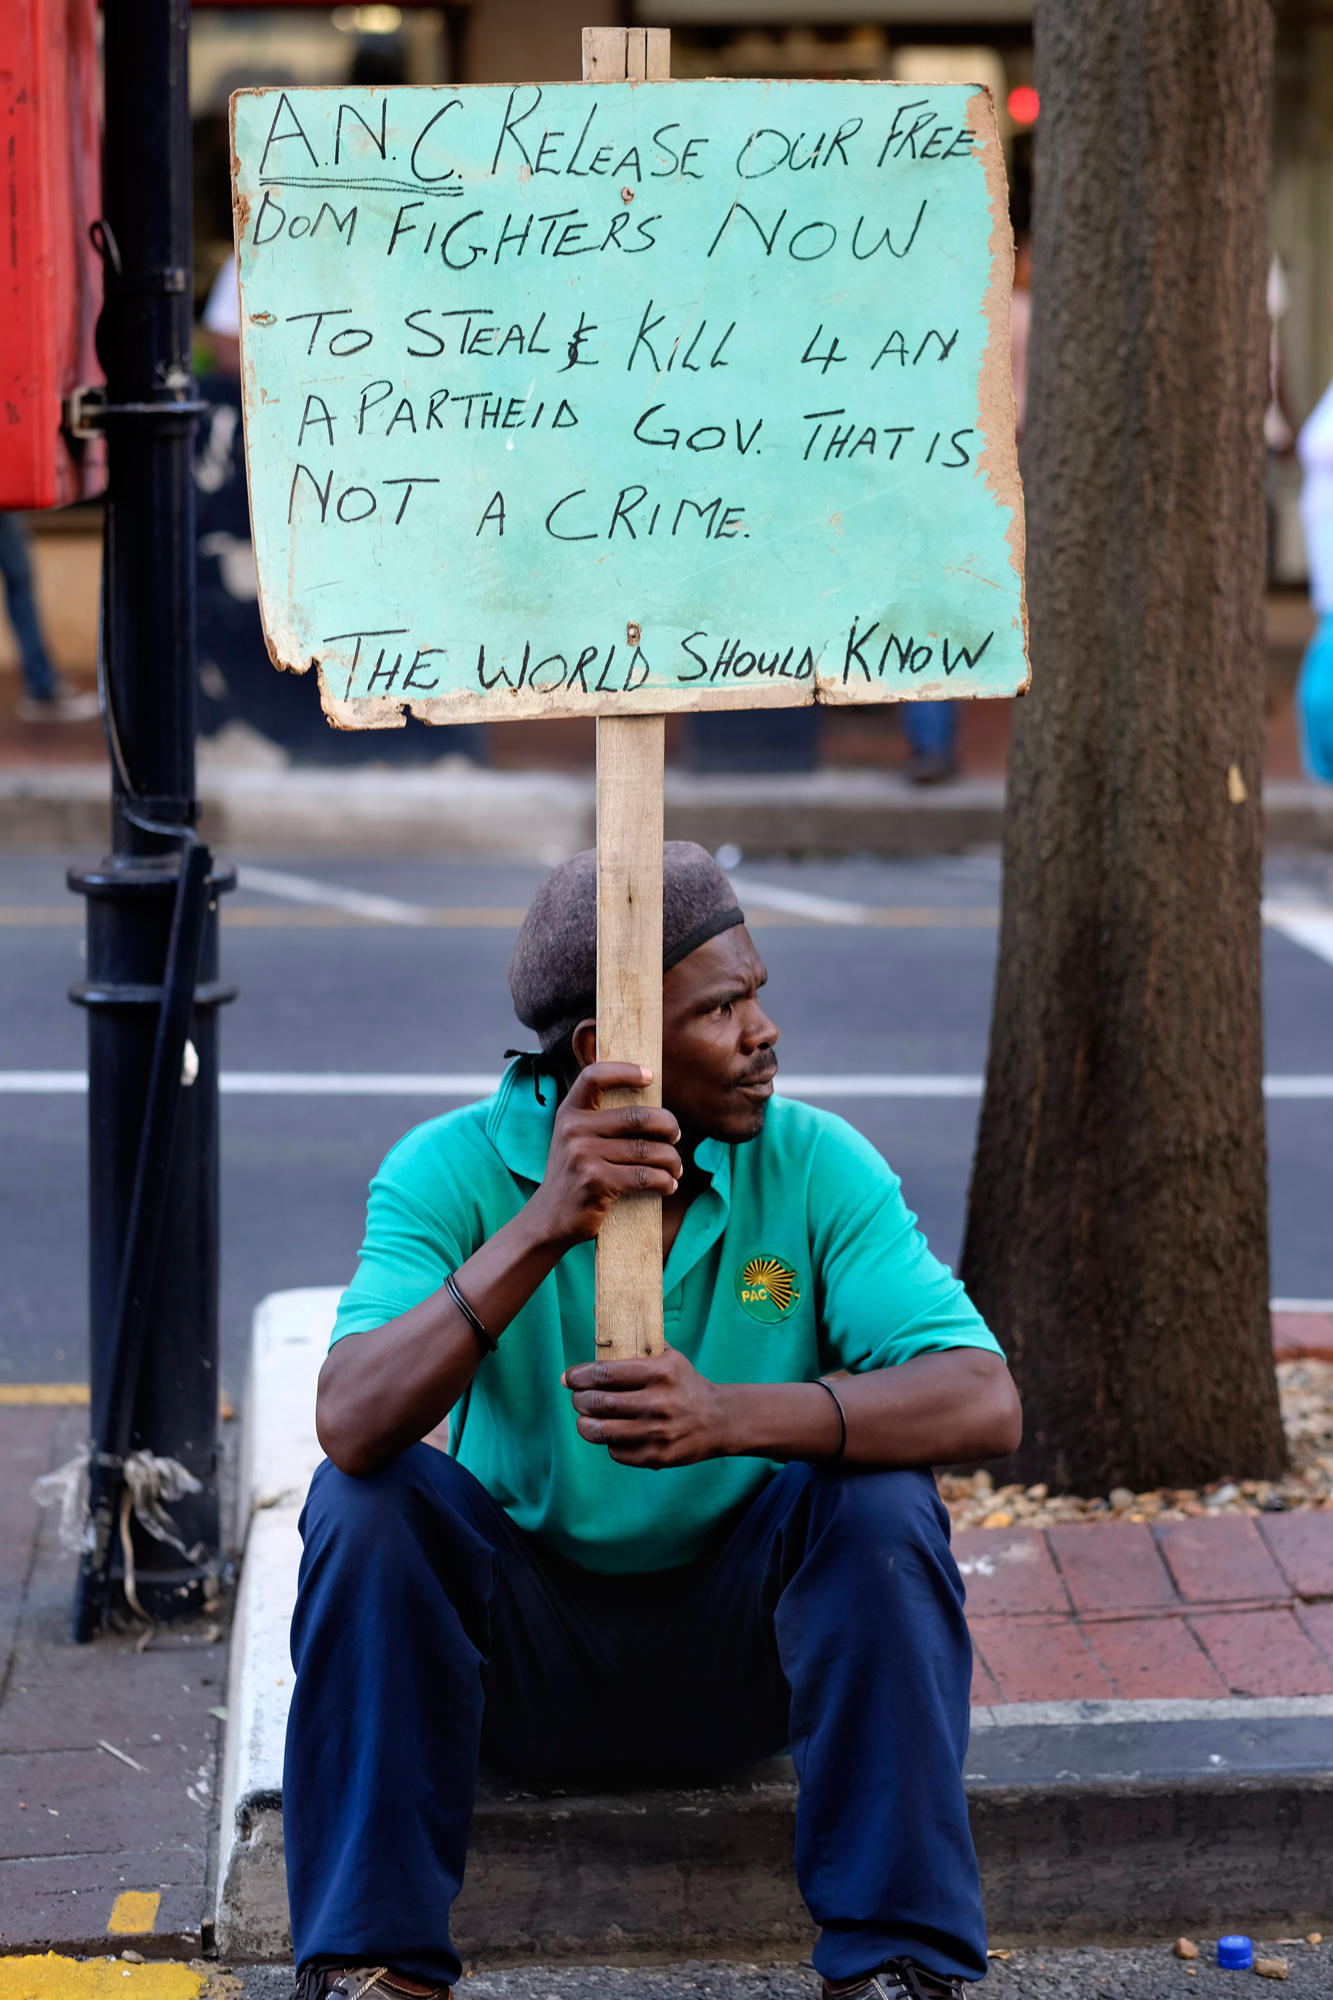 A.N.C. RELEASE OUR FREE
DOM FIGHTERS NOW
TO STEAL & KILL 4 AN
APARTHEID GOV. THAT IS
NOT A CRIME.
THE WORLD SHOULD KNOW
PAC